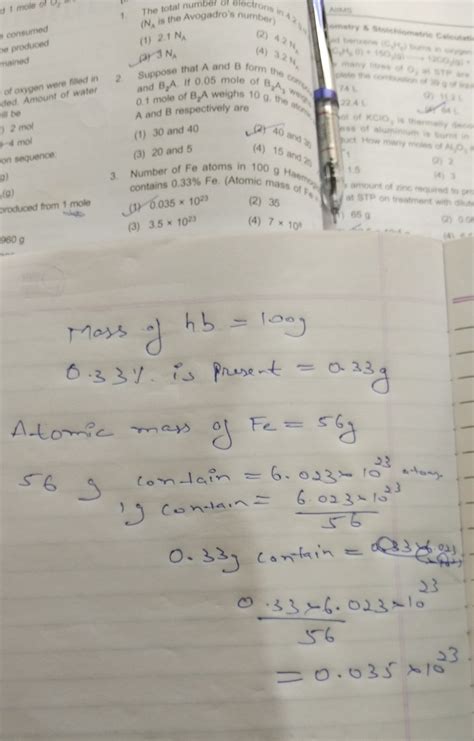 d 1 mole of O₂
s consumed
be produced
mained
of oxygen were filled in
ded. Amount of water
ill be
) 2 mol
–4 mol
on sequence.
g)
(g)
produced from 1 mole
960 g
1. The total number of electrons in 4.2 g
(Nₐ is the Avogadro's number)
(1) 2.1 Nₐ
(2) 4.2 Nₐ
(3) 3 Nₐ
(4) 3.2 Nₐ
2. Suppose that A and B form the
and B₂A. If 0.05 mole of B₂A₃
0.1 mole of B₂A weighs 10 g, the
A and B respectively are
(1) 30 and 40
(2) 40 and 30
(3) 20 and 5
(4) 15 and 20
3. Number of Fe atoms in 100 g Haemog
contains 0.33% Fe. (Atomic mass of Fe
(1) 0.035 × 10²³
(2) 35
(3) 3.5 × 10²³
(4) 7 × 10⁸
AIIMS
ometry & Stoichiometric Calculati
benzene (C₆H₆) burns in oxygen
many litres of O₂ at STP are
plete the combustion of
74 L
22.4 L
of KClO₃ is thermally
ss of aluminium is burnt
uct. How many moles of Al₂O₃
(2) 2
1.5
(4) 3
amount of zinc required to
at STP on treatment with dilute
65 g
Mass of hb = 100g
0.33% is Present = 0.33g
Atomic mass of Fe = 56g
56 g contain = 6.023×10²³ atoms
1g contain = 6.023×10²³
56
0.33g contain =
0.33×6.023×10²³
56
= 0.035×10²³